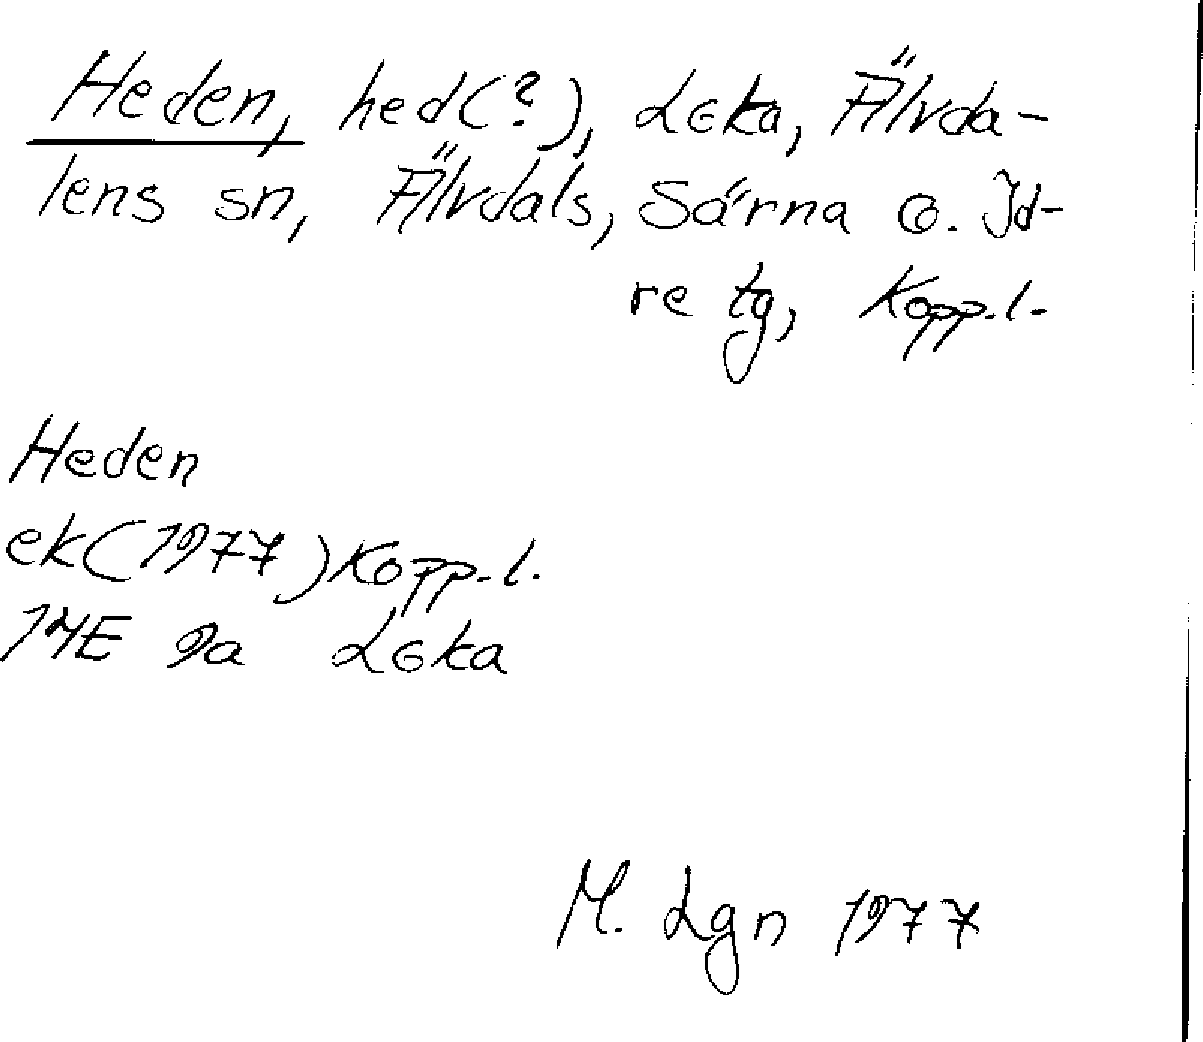 Heden, hed(?), Loka, Älvda-
lens sn, Älvdals, Särna o. Id-
re tg, Kopp.l.
Heden
ek(1977)Kopp.l.
14E 9a Loka
M. Lgn 1977